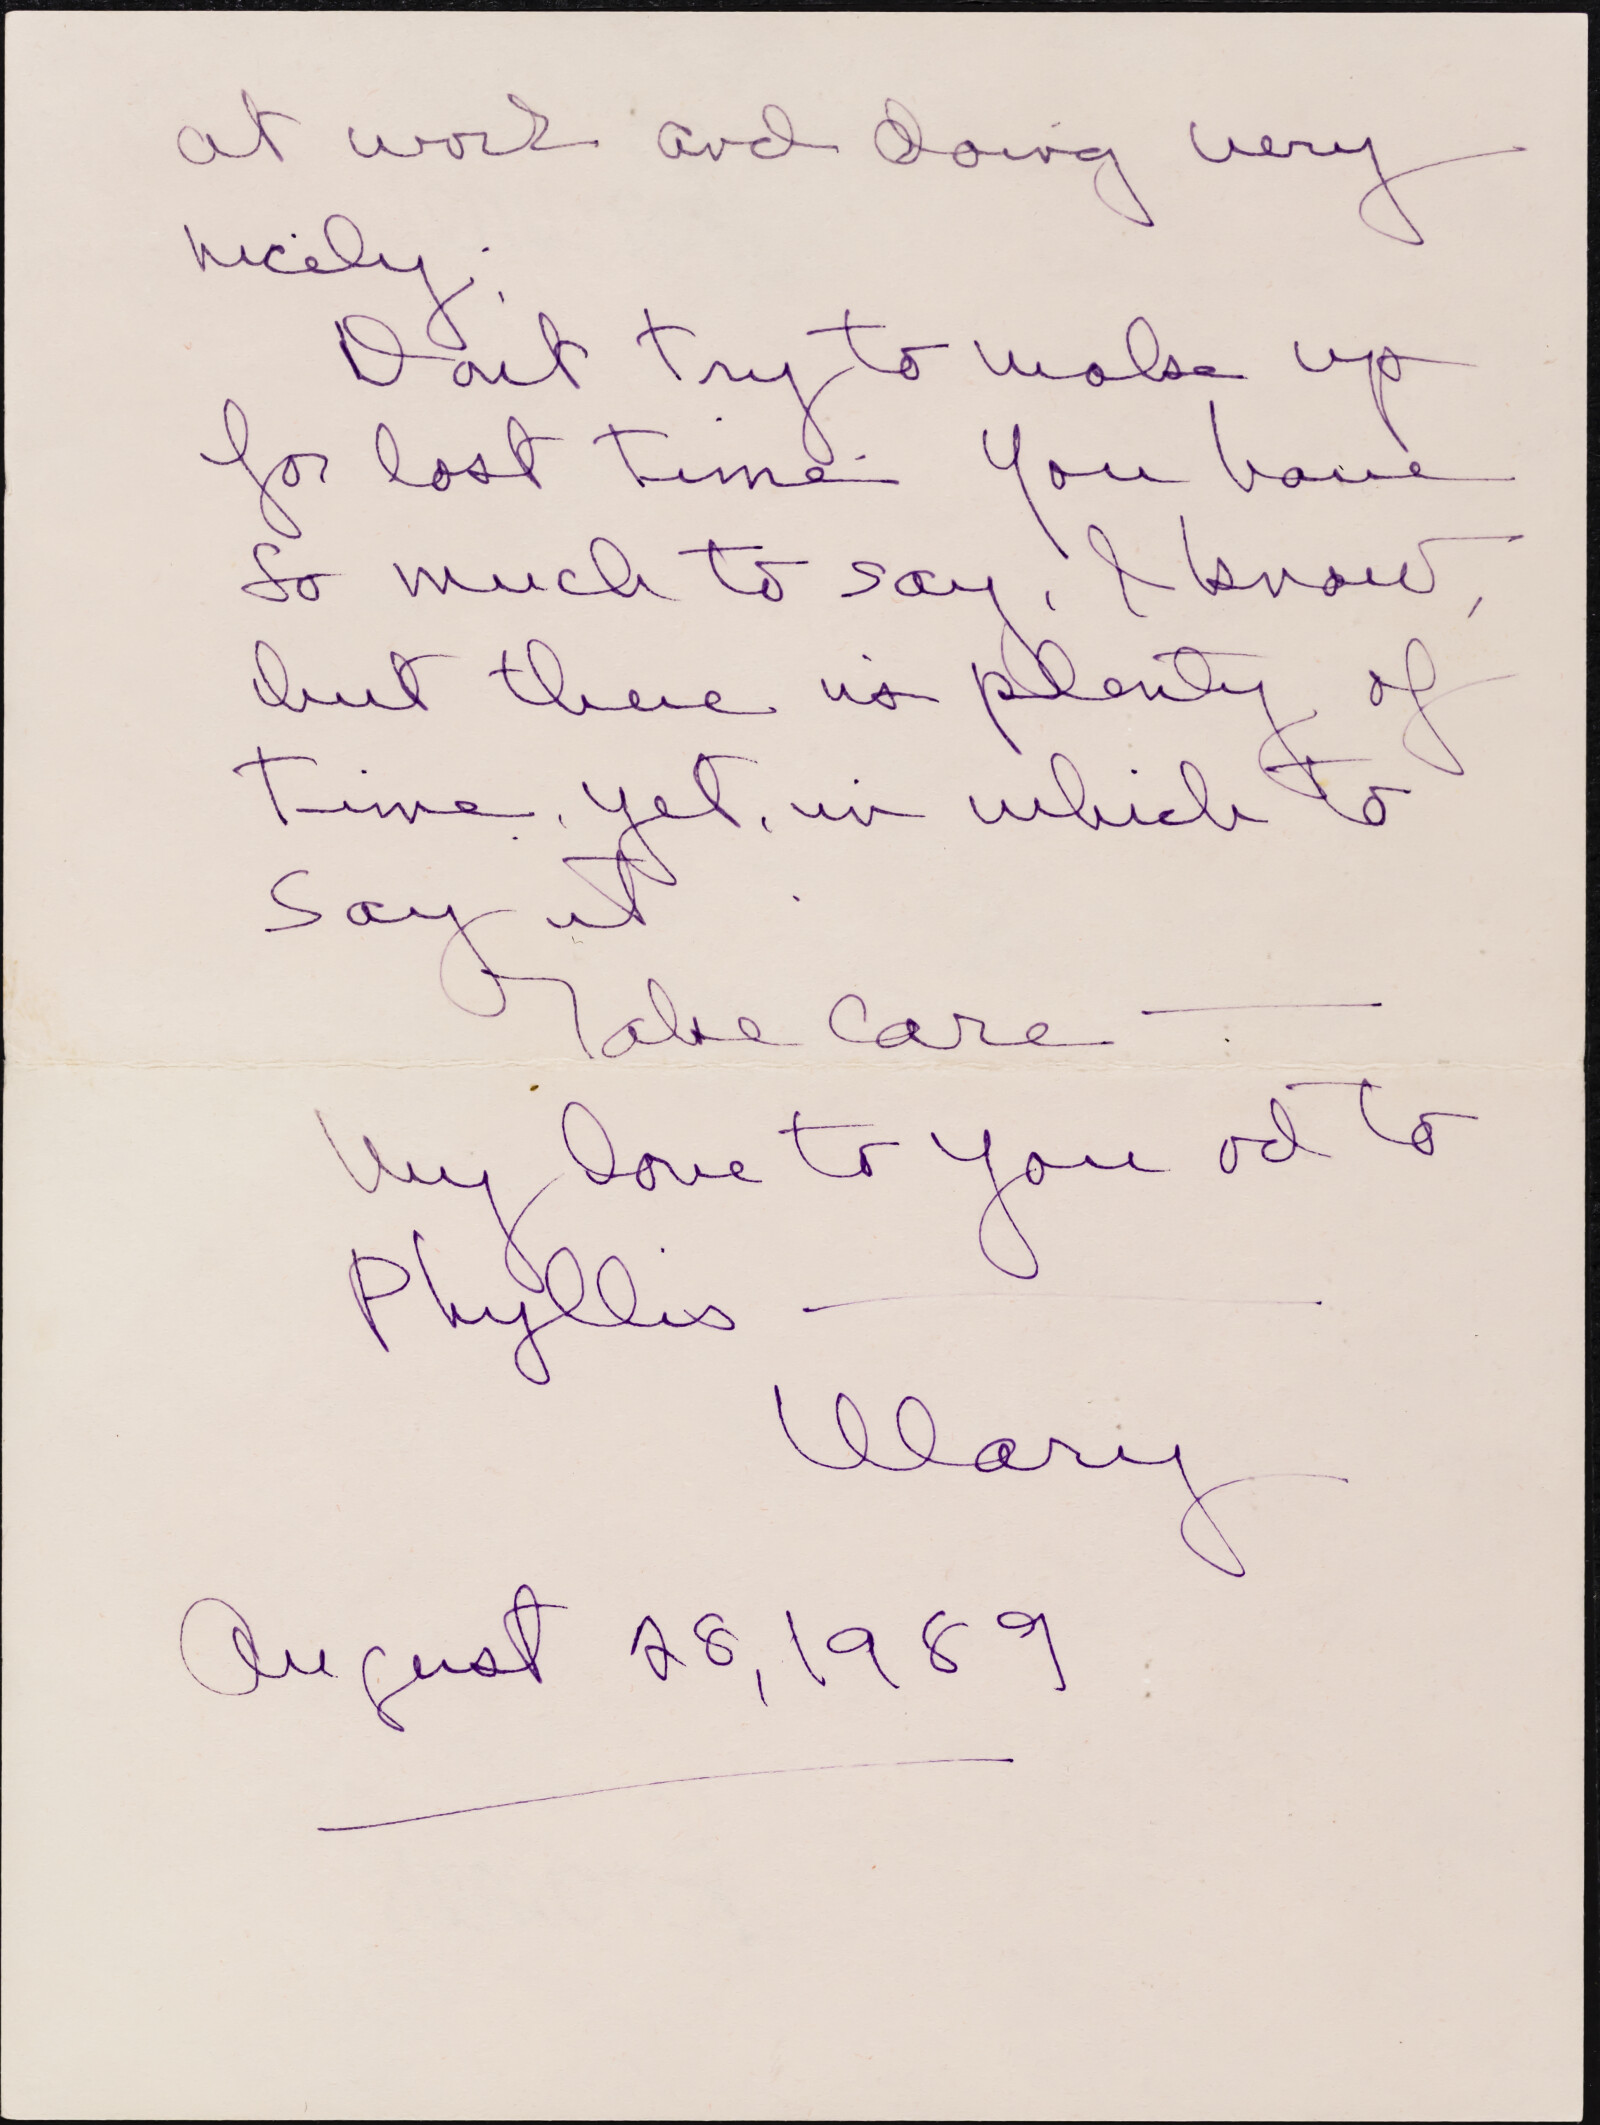 at work and doing very
nicely.
Don't try to make up
for lost time. You have
so much to say, I know,
but there is plenty of
time, yet, in which to
say it.
Take care —
My love to you and to
Phyllis —
Mary
August 28, 1989